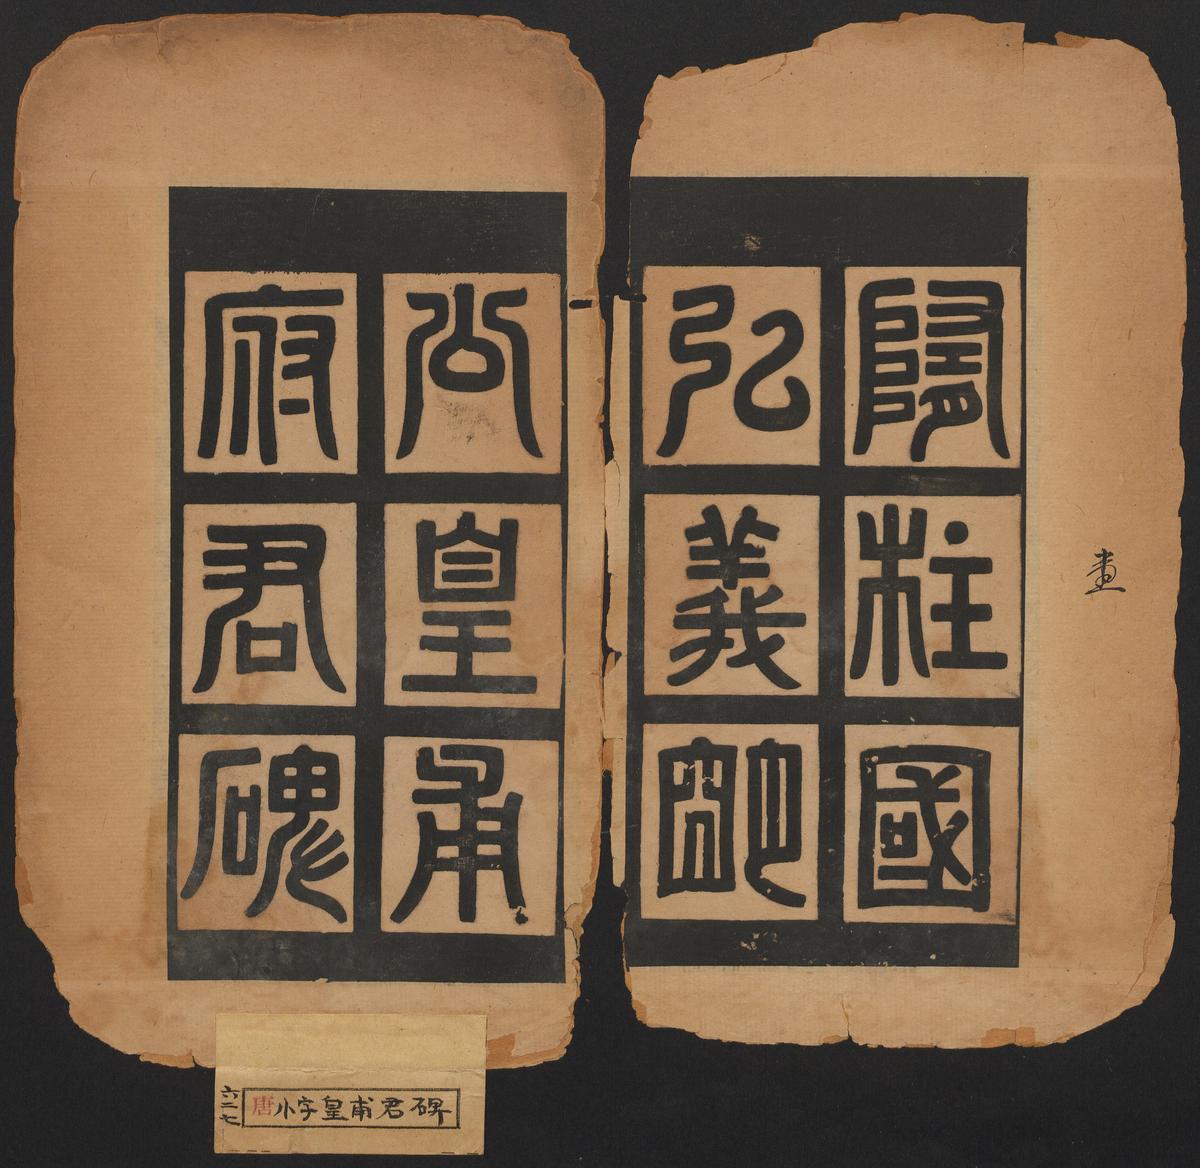 隋柱國
弘義明
公皇甫
府君碑
唐小字皇甫君碑
六二七